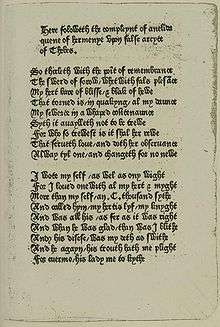 Here foloweth the compleynt of anelida
quene of hermenye vpon false arcyte
of Thebes.
So thirleth with the poynt of remembrance
The swerd of sorow, whet with fals plesance
My hert bare of blisse, & blak of hewe
That torned is, in qualyng, al my daunce
My sewerte in a whaped contenance
Syth it auailleth not to be trewe
For who so trewest is it shal her rewe
That serueth loue, and doth her obseruance
Alway tyl one, and changeth for no newe
I wote my self, as wel as ony wight
For I loued one with al my hert & myght
More than my self, an, C, thousand syth
And called hym, my hertis lyf, my knyght
And was all his, as fer as it was right
And whan he was glad, than was I blith
And his disese, was my deth as swith
And he agayn, his trouth hath me plight
For euermo, his lady me to kyth